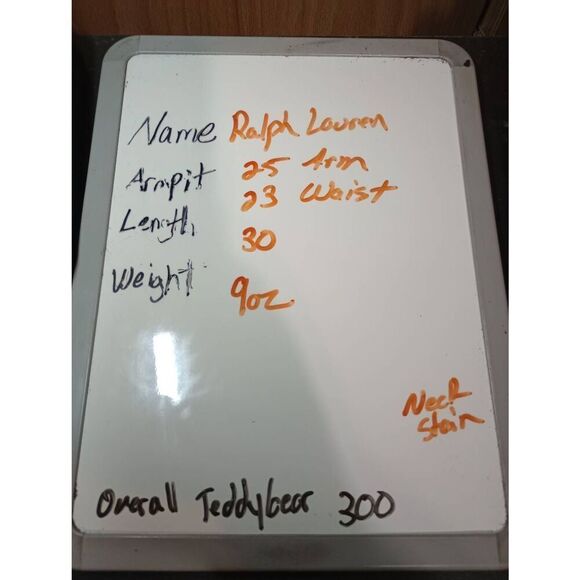 Name Ralph Lauren
Armpit 25 Arm
23 Waist
Length 30
Weight 9oz
Neck
stain
Overall Teddybear 300